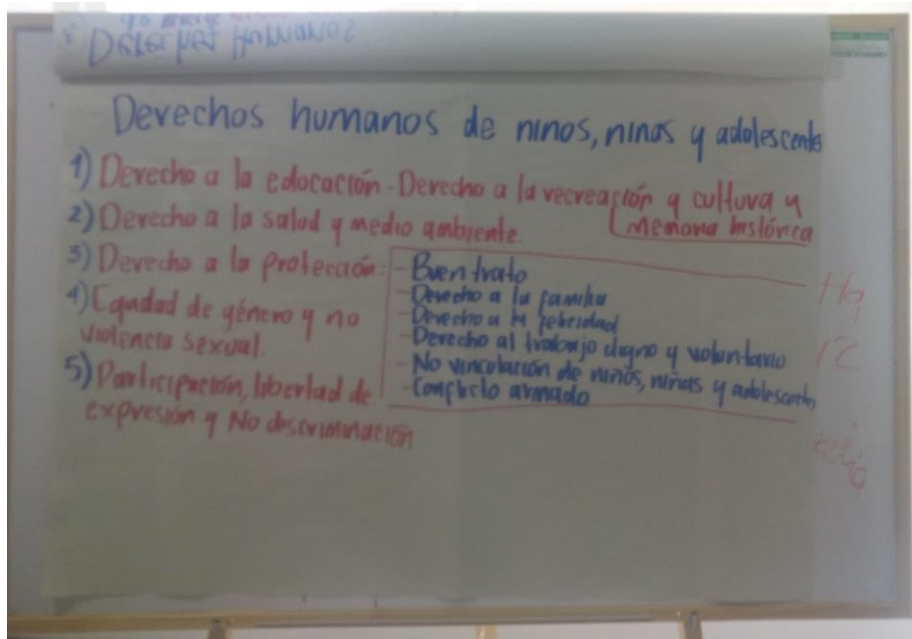 Derechos humanos de ninos, ninas y adolescentes
1) Derecho a la edocación - Derecho a la recreación y cultura y
memoria histórica
2) Derecho a la salud y medio ambiente.
3) Derecho a la Protección:
- Buen trato
- Derecho a la familia
- Derecho a la felicidad
- Derecho al trabajo digno y voluntario
- No vinculación de niños, niñas y adolescentes
- Conflicto armado
4) Equidad de género y no
violencia sexual.
5) Participación, libertad de
expresión y No discriminación